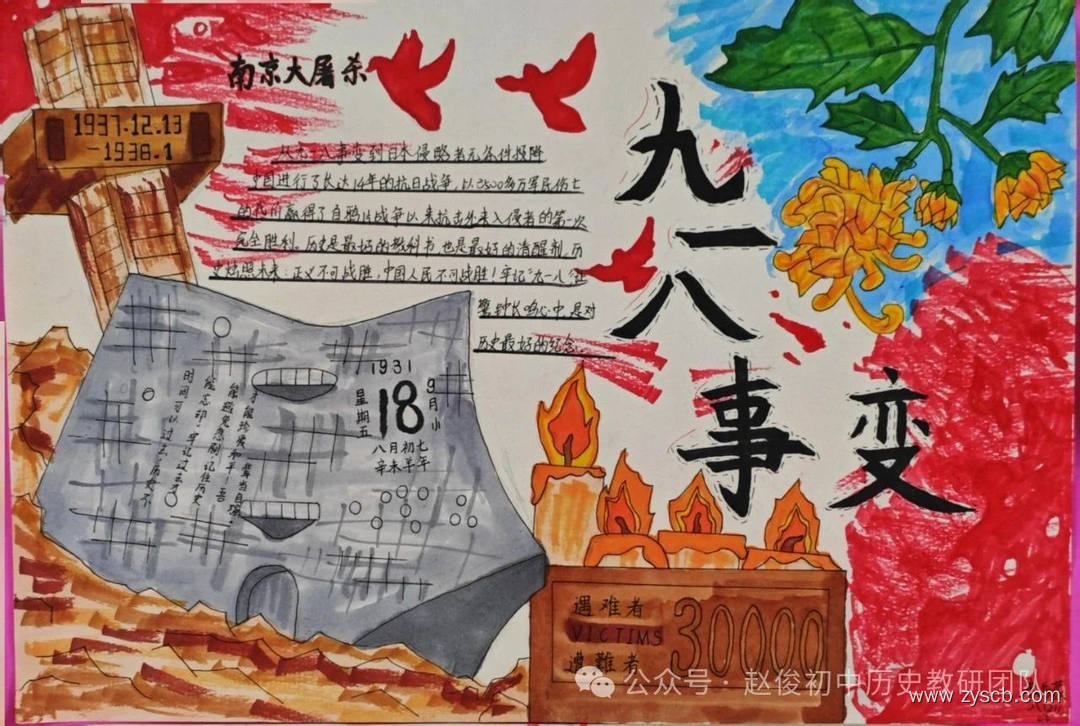 南京大屠杀
1937.12.13
-1938.1
从九一八事变到日本侵略者无条件投降
中国进行了长达14年的抗日战争,以3500多万军民伤亡
的代价赢得了自鸦片战争以来抗击外来入侵者的第一次
完全胜利。历史是最好的教科书也是最好的清醒剂,历
史烛照未来:正义不可战胜,中国人民不可战胜!牢记"九一八"让
警钟长鸣心中,是对
历史最好的纪念。
九一八事变
1931
9月小
18
星期五
八月初七
辛未羊年
时间可以过去,历史不
能忘却,牢记过去才
能避免悲剧,记住历史
才能珍爱和平!吾辈当自强。
遇难者
VICTIMS
遭難者
30000
公众号·赵俊初中历史教研团队
www.zyscb.com